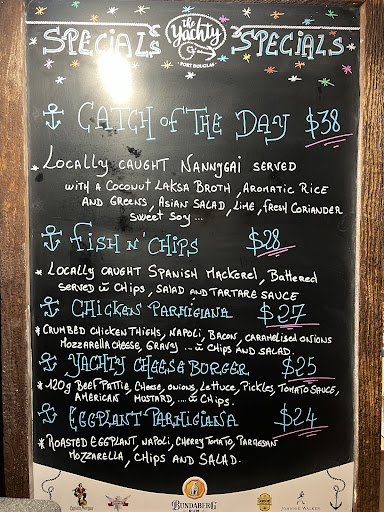 SPECIALS The Yachty SPECIALS
PORT DOUGLAS
CATCH OF THE DAY $38
* LOCALLY CAUGHT NANNYGAI SERVED
WITH A COCONUT LAKSA BROTH, AROMATIC RICE
AND GREENS, ASIAN SALAD, LIME, FRESH CORIANDER
SWEET SOY ...
FISH N' CHIPS $28
* LOCALLY CAUGHT SPANISH MACKEREL, BATTERED
SERVED w CHIPS, SALAD AND TARTARE SAUCE
CHICKEN PARMIGIANA $27
* CRUMBED CHICKEN THIGHS, NAPOLI, BACON, CARAMELISED ONIONS
MOZZARELLA CHEESE, GRAVY ... w CHIPS AND SALAD.
YACHTY CHEESE BORGER $25
* 120g BEEF PATTIE, CHEESE, ONIONS, LETTUCE, PICKLES, TOMATO SAUCE,
AMERICAN MUSTARD, .... w CHIPS.
EGGPLANT PARMIGIANA $24
* ROASTED EGGPLANT, NAPOLI, CHERRY TOMATO, PARMESAN
MOZZARELLA, CHIPS AND SALAD.
Captain Morgan BUNDABERG JOHNNIE WALKER
RUM